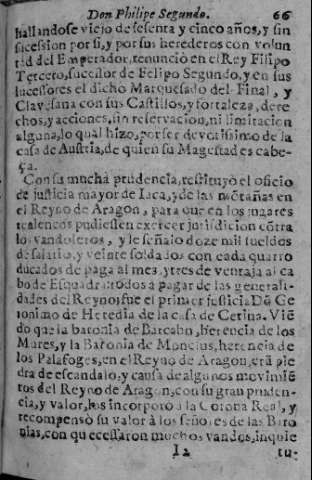 Don Philipe Segundo. 66
hallandose viejo de sesenta y cinco años, y sin
sucession por si, y por sus herederos con volun
tad del Emperador, renunciò en el Rey Filipo
Tercero, sucessor de Felipo Segundo, y en sus
sucessores el dicho Marquesado del Final, y
Clavesana con sus Castillos, y fortaleza, dere
chos, y acciones, sin reservacion, ni limitacion
alguna, lo qual hizo, por ser devotissimo de la
casa de Austria, de quien su Magestad es cabe-
ça.
Con su mucha prudencia, restituyò el oficio
de justicia mayor de Iaca, y de las mõtañas en
el Reyno de Aragon, para que en los lugares
realencos pudiessen exercer jurisdicion cõtra
los vandoleros, y le señalo doze mil sueldos
de salario, y veinte soldados con cada quatro
ducados de paga al mes, y tres de ventaja al ca
bo de Esquadra todos a pagar de las generali-
dades del Reyno, fue el primer justicia Dõ Ge
ronimo de Heredia de la casa de Cetina. Viẽ
do que la baronia de Barcabo, herencia de los
Mures, y la Baronia de Monclus, herencia de
los Palafoges, en el Reyno de Aragon, erã pie
dra de escandalo, y causa de algunos movimiẽ
tos del Reyno de Aragon, con su gran pruden-
cia, y valor, las incorporò a la Corona Real, y
recompensò su valor à los señores de las Baro
nias, con que cessaron muchos vandos, inquie
I2 tu-